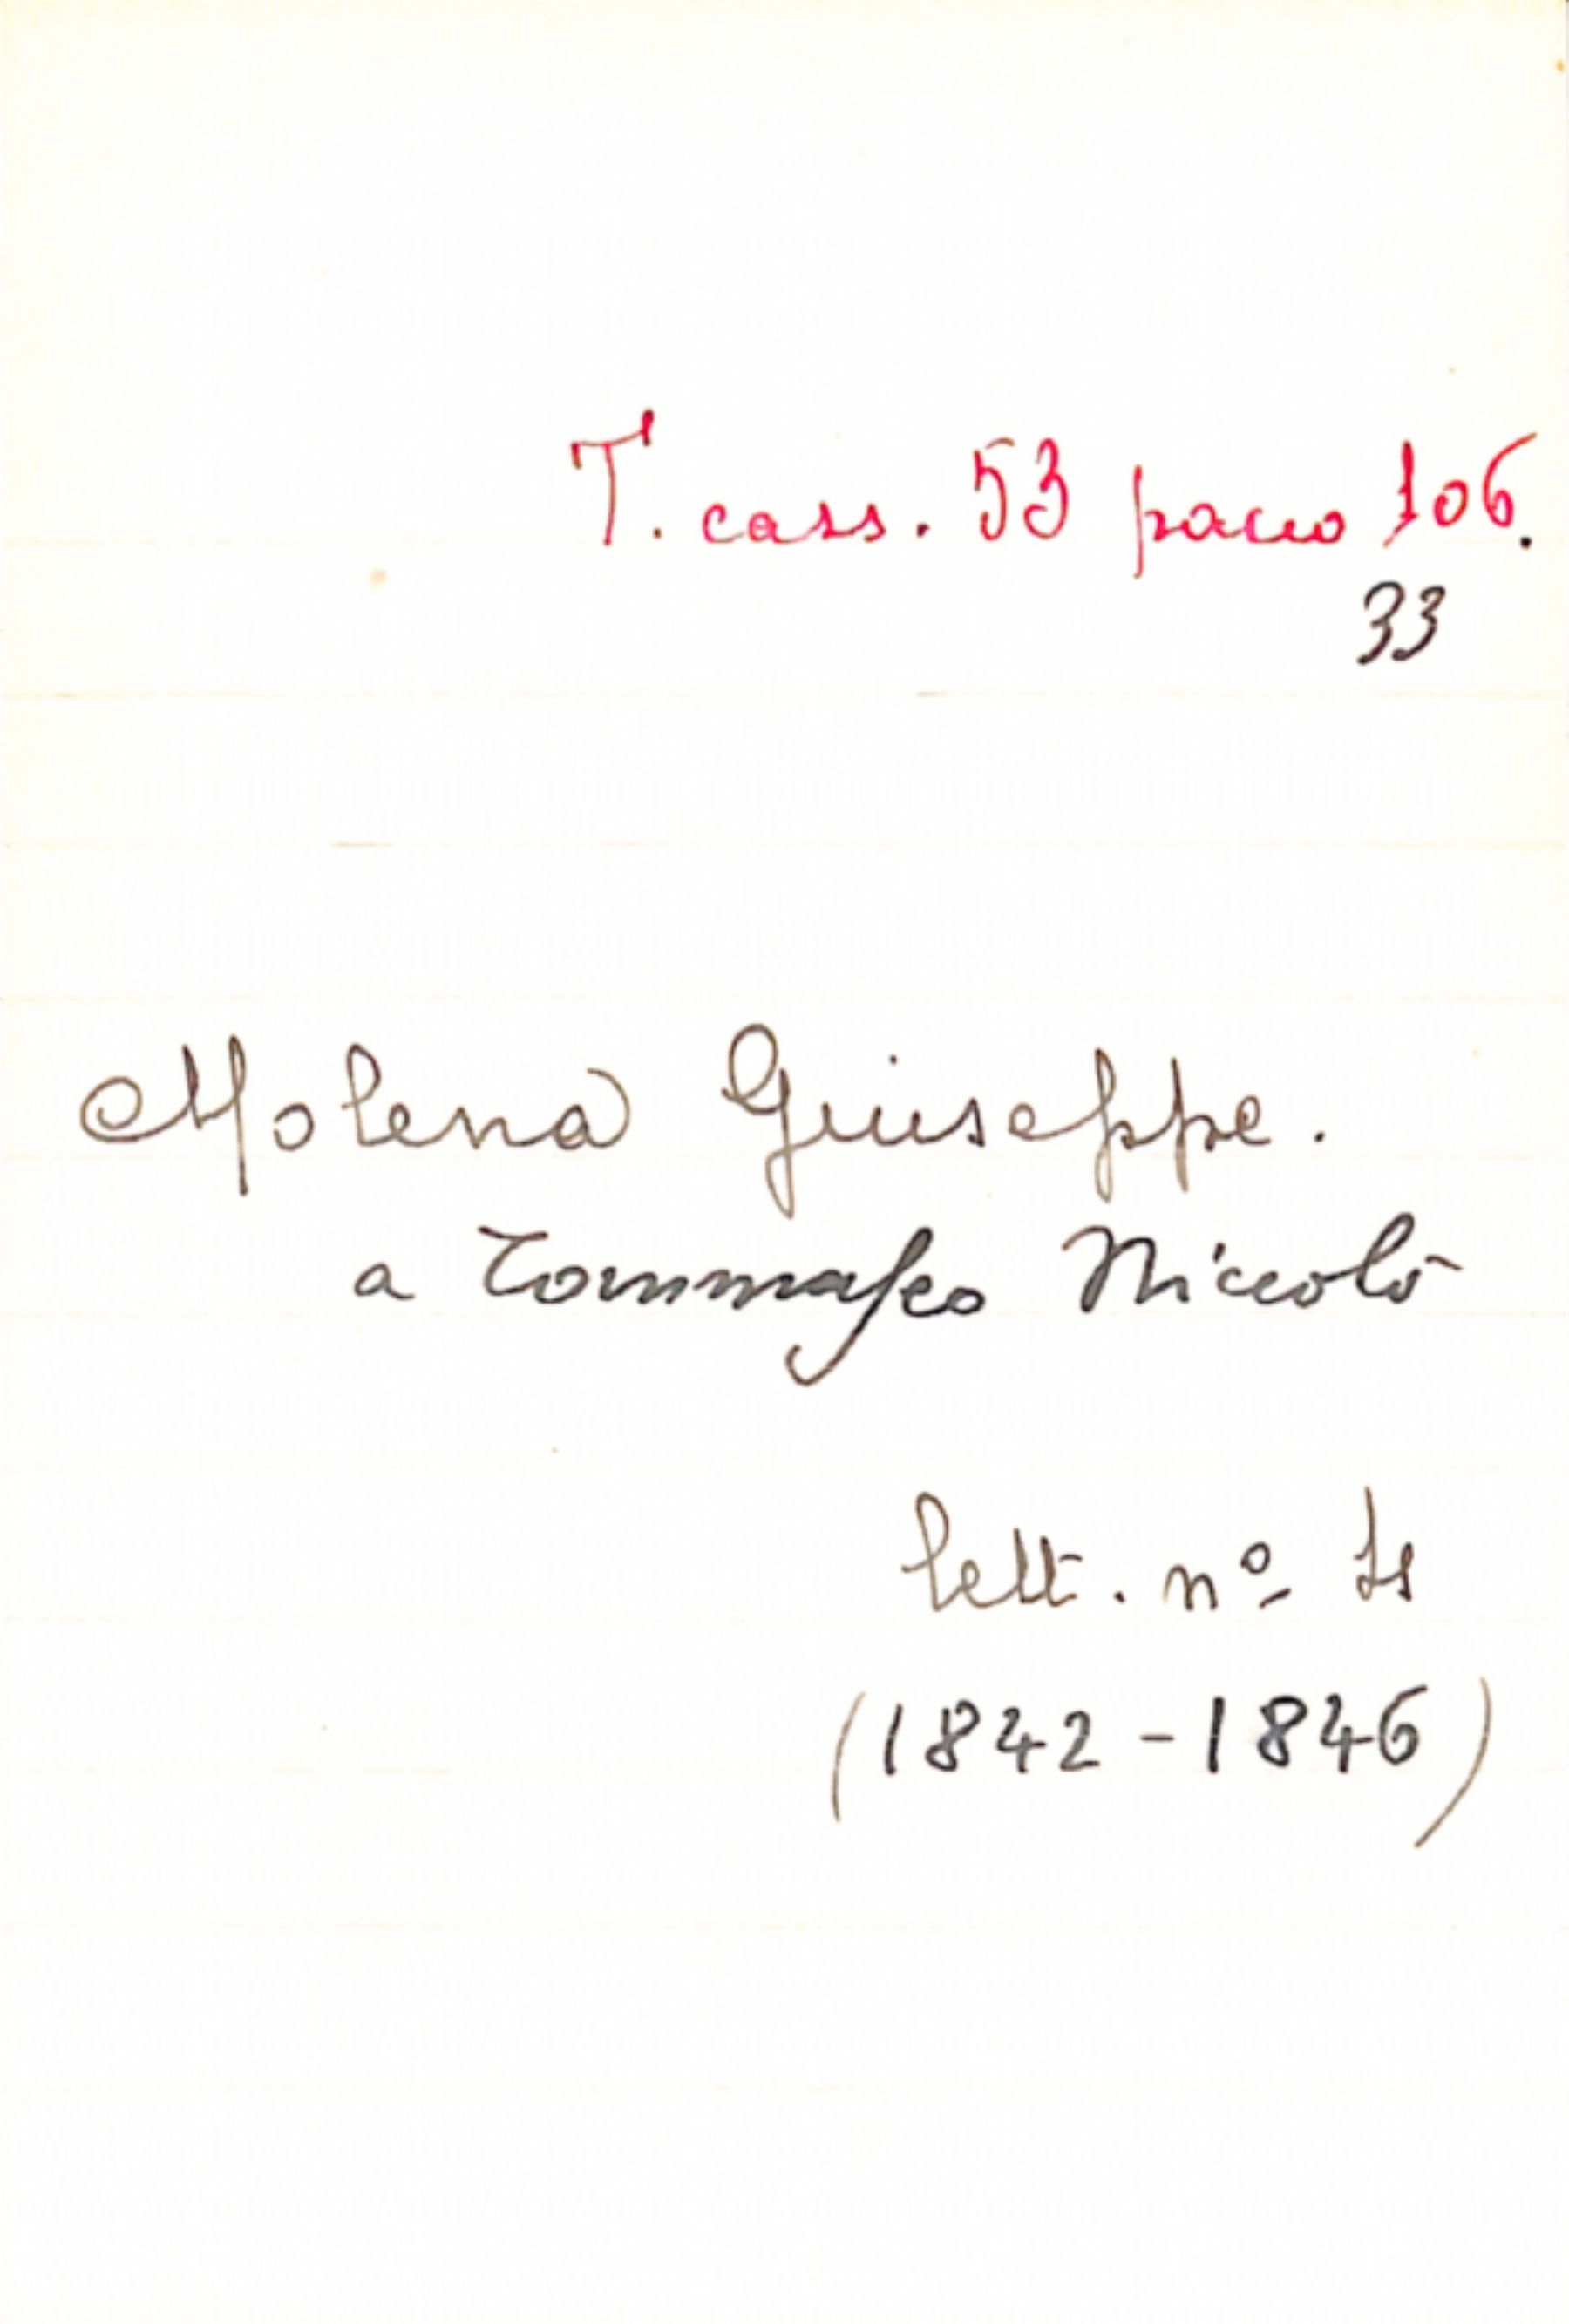 T. cass. 53 pacco 106.
33
Molena Giuseppe.
a Tommaseo Niccolò
lett. nº
(1842-1846)